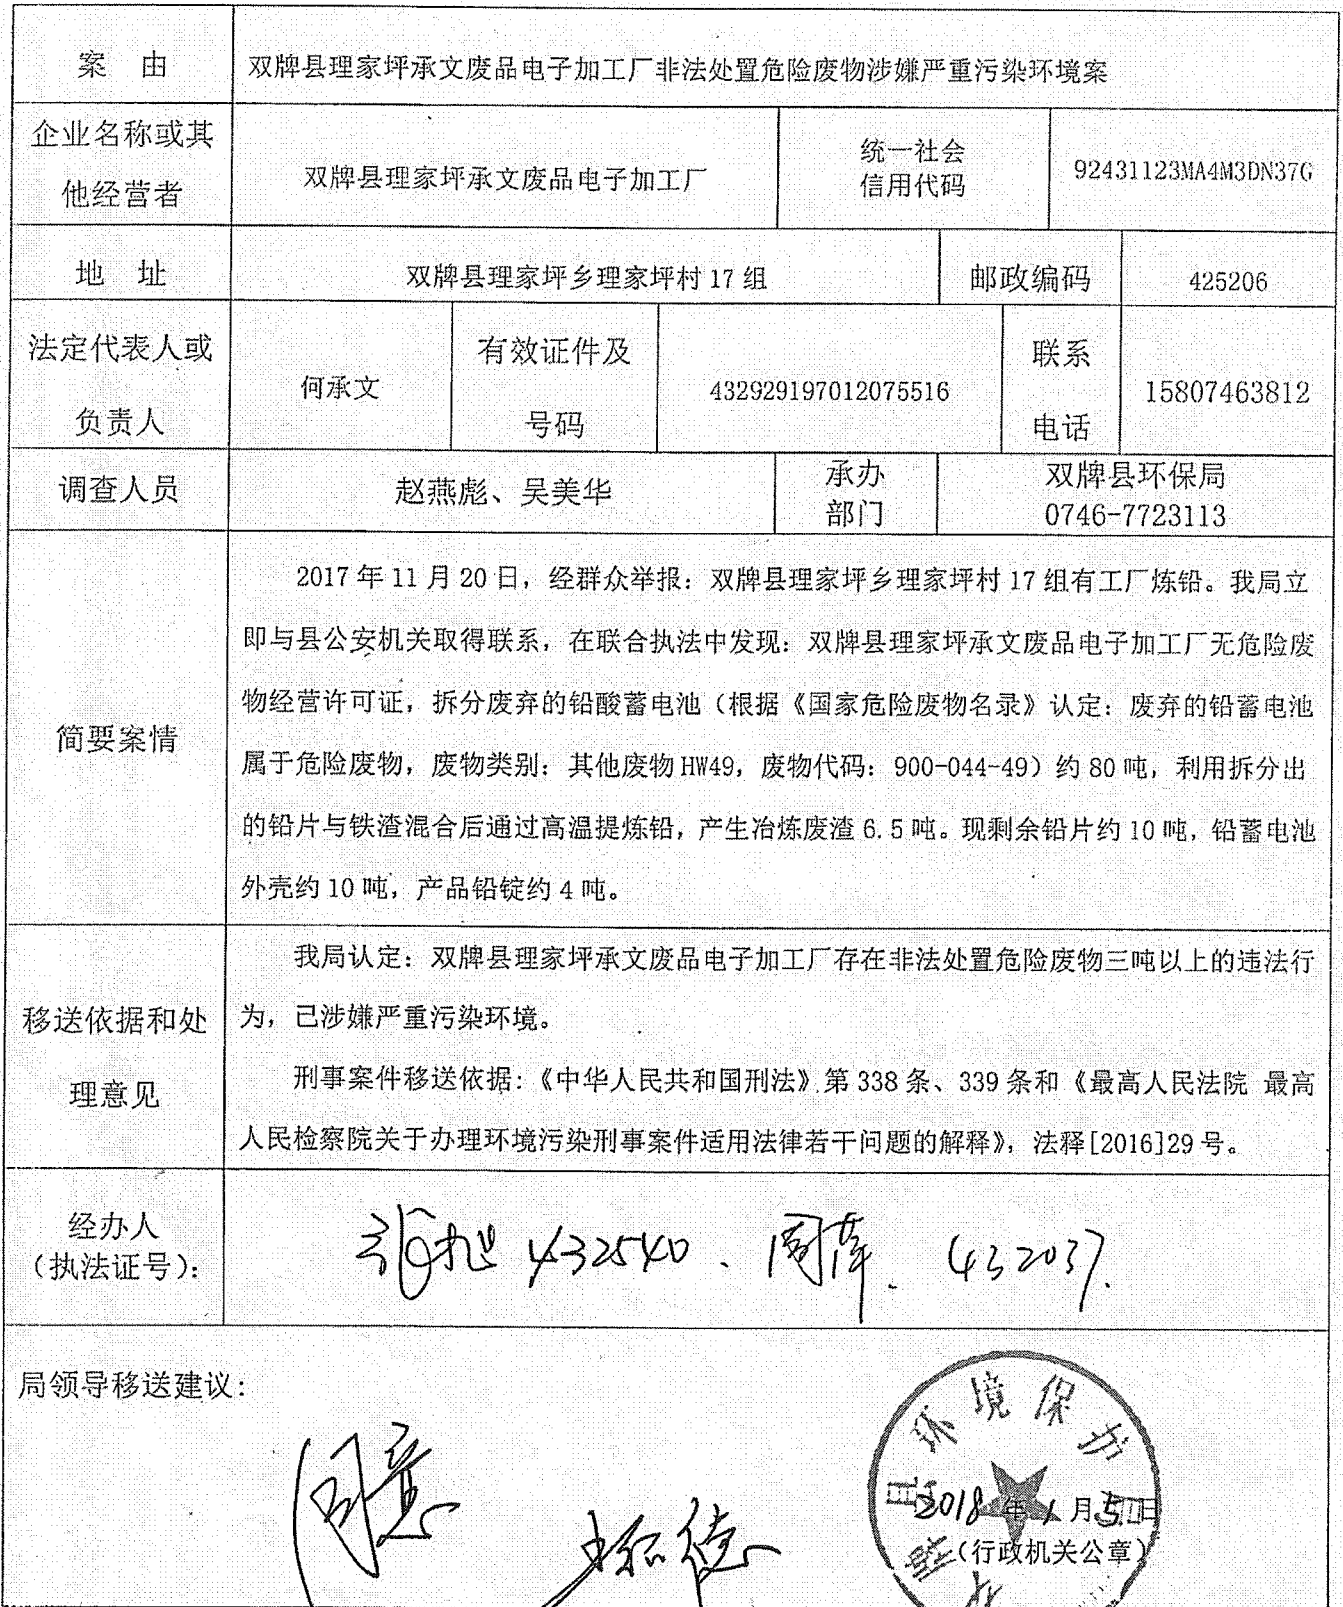 案 由
双牌县理家坪承文废品电子加工厂非法处置危险废物涉嫌严重污染环境案
企业名称或其
他经营者
双牌县理家坪承文废品电子加工厂
统一社会
信用代码
92431123MA4M3DN37G
地 址
双牌县理家坪乡理家坪村 17 组
邮政编码
425206
法定代表人或
负责人
何承文
有效证件及
号码
432929197012075516
联系
电话
15807463812
调查人员
赵燕彪、吴美华
承办
部门
双牌县环保局
0746-7723113
简要案情
2017 年 11 月 20 日，经群众举报：双牌县理家坪乡理家坪村 17 组有工厂炼铅。我局立
即与县公安机关取得联系，在联合执法中发现：双牌县理家坪承文废品电子加工厂无危险废
物经营许可证，拆分废弃的铅酸蓄电池（根据《国家危险废物名录》认定：废弃的铅蓄电池
属于危险废物，废物类别：其他废物 HW49，废物代码：900-044-49）约 80 吨，利用拆分出
的铅片与铁渣混合后通过高温提炼铅，产生冶炼废渣 6.5 吨。现剩余铅片约 10 吨，铅蓄电池
外壳约 10 吨，产品铅锭约 4 吨。
移送依据和处
理意见
我局认定：双牌县理家坪承文废品电子加工厂存在非法处置危险废物三吨以上的违法行
为，已涉嫌严重污染环境。
刑事案件移送依据：《中华人民共和国刑法》第 338 条、339 条和《最高人民法院 最高
人民检察院关于办理环境污染刑事案件适用法律若干问题的解释》，法释[2016]29 号。
经办人
（执法证号）：
432540、周萍、432037.
局领导移送建议：
同意
县环境保护局
2018 年 1 月 5 日
（行政机关公章）